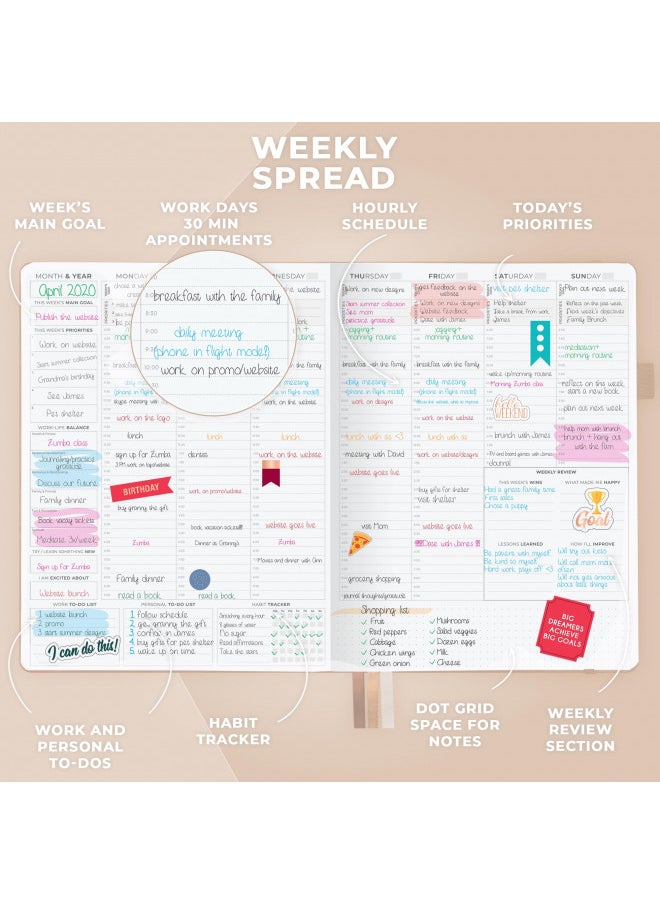 WEEKLY
SPREAD
WEEK'S
MAIN GOAL
WORK DAYS
30 MIN
APPOINTMENTS
HOURLY
SCHEDULE
TODAY'S
PRIORITIES
MONTH & YEAR
April 2020
THIS WEEK'S MAIN GOAL
Publish the website
THIS WEEK'S PRIORITIES
Work on website
Start summer collection
Grandma's birthday
See James
Pet shelter
WORK-LIFE BALANCE
Zumba class
Journaling/practice
gratitude
Discuss our future
Family dinner
Book vocay tickets
Meditate 3x/week
TRY / LEARN SOMETHING NEW
Sign up for Zumba
I AM EXCITED ABOUT
Website launch
MONDAY
work on the logo
lunch
sign up for Zumba
3 PM work on logo/website
BIRTHDAY
buy granny the gift
Zumba
Family dinner
read a book
breakfast with the family
9:00
daily meeting
(phone in flight mode!)
10:00
work on promo/website
lunch
dentist
work on promo/website
book vacation tickets!!!
Dinner at Granny's
read a book
lunch
work on the website
website goes live
Movies and dinner with Ann
WORK TO-DO LIST
1 website launch
2 promo
3 start summer designs
I can do this!
PERSONAL TO-DO LIST
1 follow schedule
2 get granny the gift
3 confide in James
4 buy gifts for pet shelter
5 wake up on time
HABIT TRACKER
Stretching every hour
8 glasses of water
No sugar
Read affirmations
Take the stairs
THURSDAY
Work on new designs
Start summer collection
See mom
practice gratitude
jogging+
morning routine
breakfast with the family
daily meeting
(phone in flight mode!)
work on designs
lunch with sis <3
meeting with David
website goes live
visit Mom
grocery shopping
journal thoughts/gratitude
FRIDAY
get feedback on the
website
Work on new designs
Website feedback
See James
jogging+
morning routine
breakfast with the family
daily meeting
work on website
lunch with sis
work on website/designs
buy gifts for shelter
visit shelter
website goes live
Date with James !!!
Shopping list
✓ Fruit
✓ Red peppers
✓ Cabbage
✓ Chicken wings
✓ Green onion
✓ Mushrooms
✓ Salad veggies
✓ Dozen eggs
✓ Milk
✓ Cheese
SATURDAY
visit pet shelter
Help shelter
Take a break from work
James
wake up/morning routine
Morning Zumba class
hello
WEEKEND
brunch with James
TV and board games with James
journal
SUNDAY
Plan out next week
Reflect on the past week
Next week's objectives
Family Brunch
meditation+
morning routine
reflect on the week
plan out next week
call mom about brunch
brunch + hang out
with the fam
WEEKLY REVIEW
THIS WEEK'S WINS
Had a great family time
First sales
Chose a puppy
WHAT MADE ME HAPPY
Goal
LESSONS LEARNED
Be patient with myself
Be kind to myself
Hard work pays off <3
HOW I'LL IMPROVE
Will try out keto
Will call mom more
often
Will not get anxious
about little things
BIG
DREAMERS
ACHIEVE
BIG GOALS
WORK AND
PERSONAL
TO-DOS
HABIT
TRACKER
DOT GRID
SPACE FOR
NOTES
WEEKLY
REVIEW
SECTION